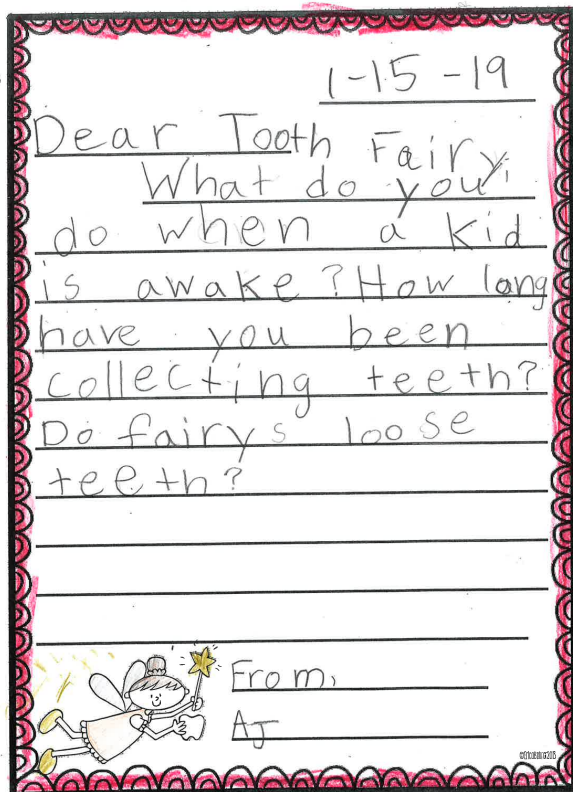 1-15-19
Dear Tooth Fairy,
What do you
do when a kid
is awake? How long
have you been
collecting teeth?
Do fairys loose
teeth?
From,
AJ